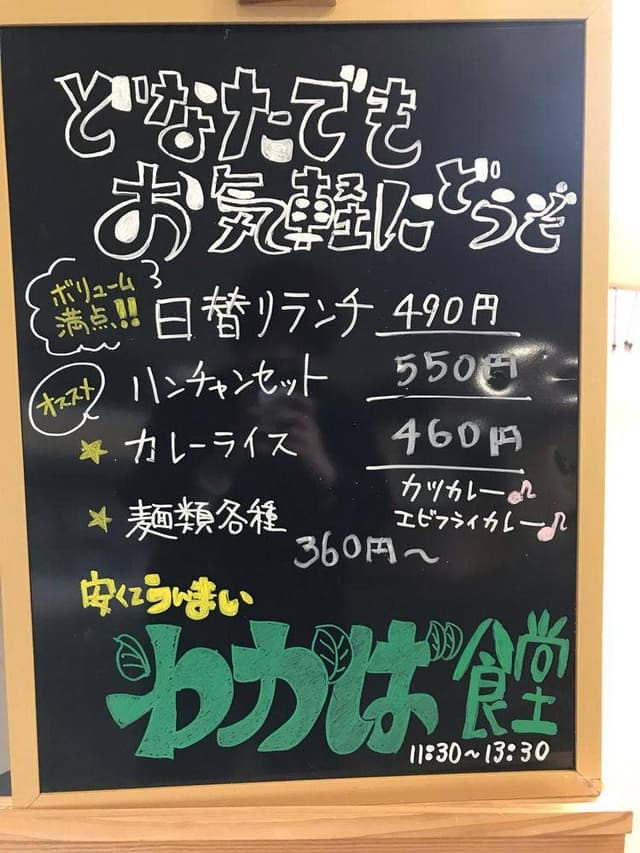 どなたでも
お気軽にどうぞ
ボリューム
満点!!
日替りランチ 490円
オススメ
ハンチャンセット 550円
★ カレーライス 460円
カツカレー♪
エビフライカレー♪
★ 麺類各種
360円~
安くてうんまい
わかば食堂
11:30~13:30